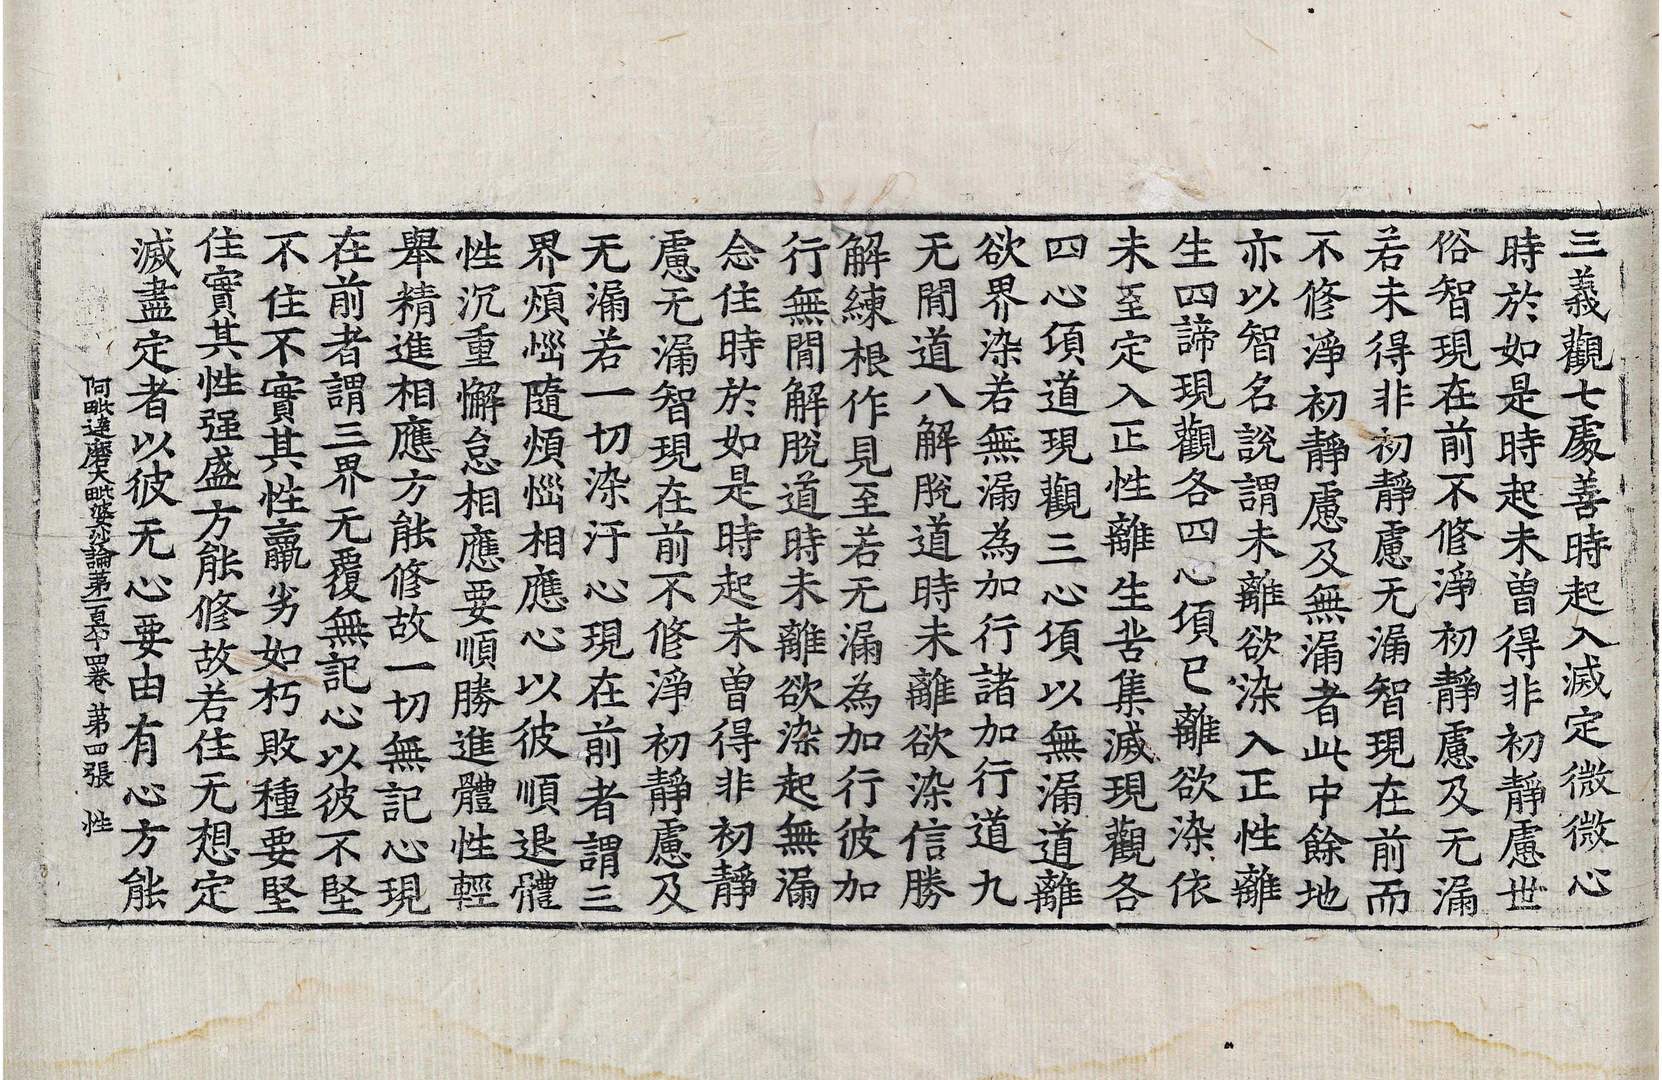 三義觀七處善時起入滅定微微心
時於如是時起未曾得非初靜慮世
俗智現在前不修淨初靜慮及无漏
若未得非初靜慮无漏智現在前而
不修淨初靜慮及無漏者此中餘地
亦以智名說謂未離欲染入正性離
生四諦現觀各四心頃已離欲染依
未至定入正性離生苦集滅現觀各
四心頃道現觀三心頃以無漏道離
欲界染若無漏為加行諸加行道九
无閒道八解脫道時未離欲染信勝
解練根作見至若无漏為加行彼加
行無閒解脫道時未離欲染起無漏
念住時於如是時起未曾得非初靜
慮无漏智現在前不修淨初靜慮及
无漏若一切染汙心現在前者謂三
界煩惱隨煩惱相應心以彼順退體
性沉重懈怠相應要順勝進體性輕
舉精進相應方能修故一切無記心現
在前者謂三界无覆無記心以彼不堅
不住不實其性羸劣如朽敗種要堅
住實其性强盛方能修故若住无想定
滅盡定者以彼无心要由有心方能
阿毗達磨大毗婆沙論第一百六十四卷 第四張 性